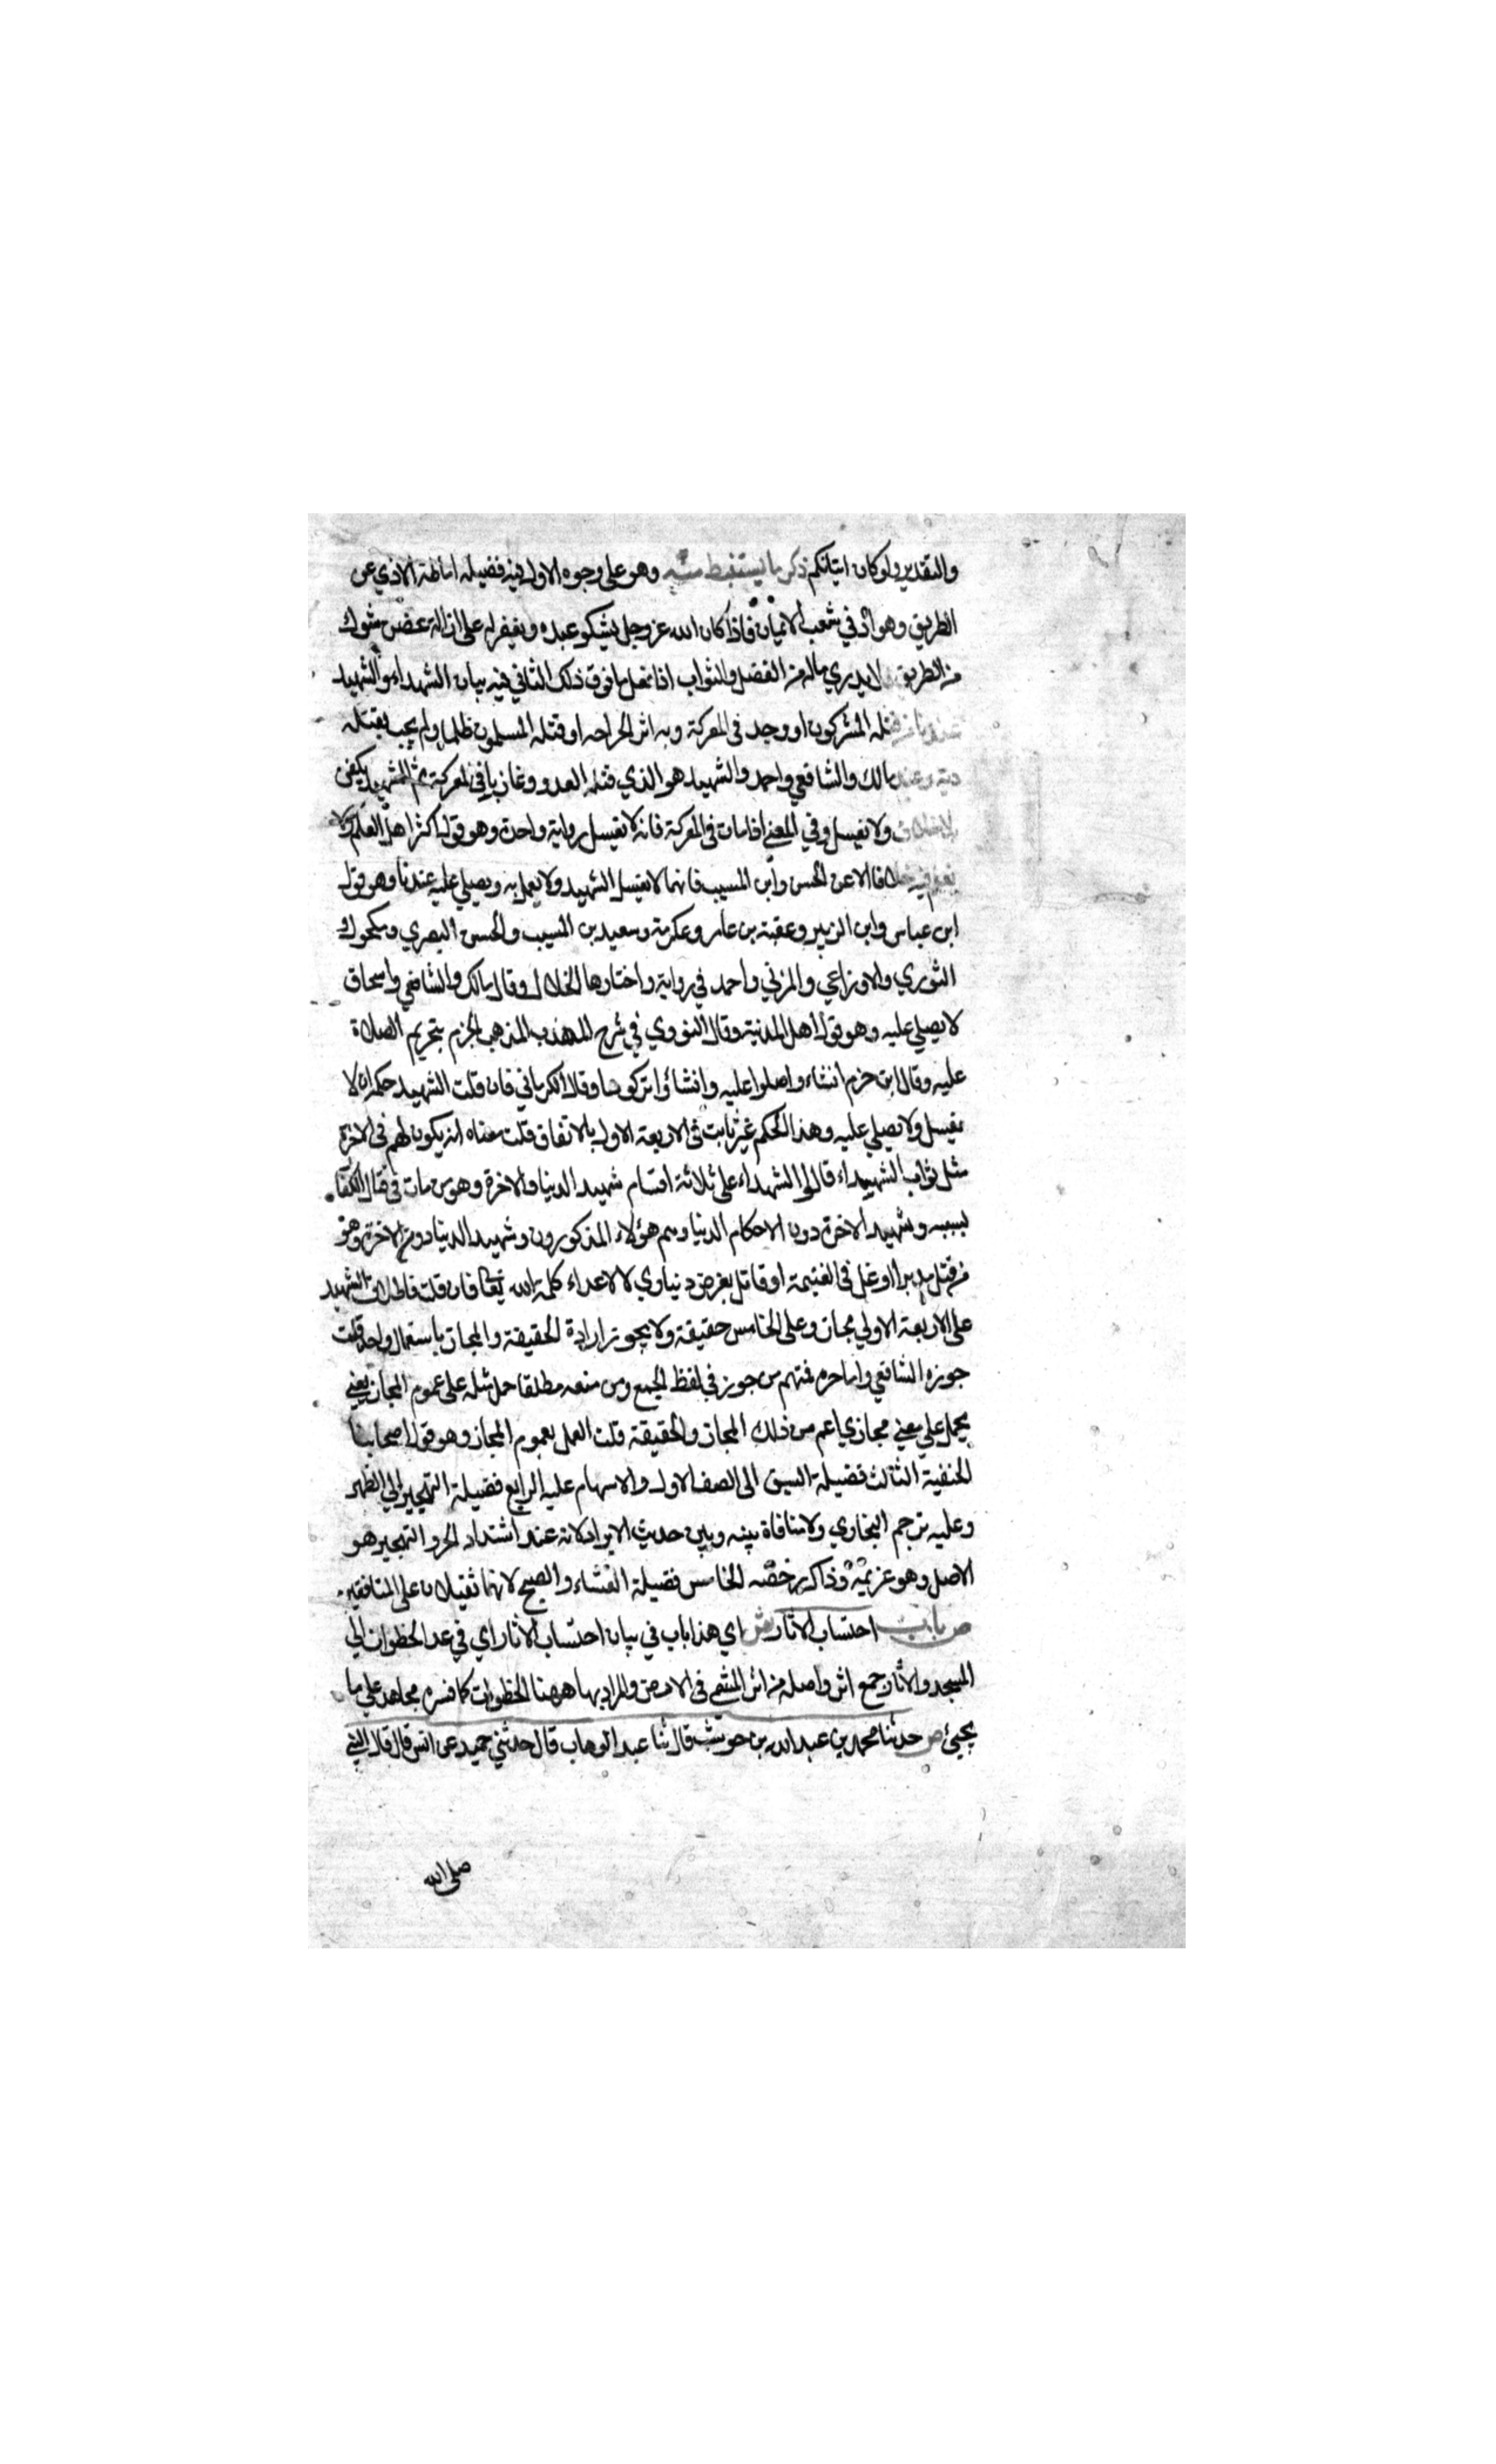 والتقدير ولو كان اتيانكم ذكر ما يستنبط منه وهو على وجوه الاول فيه فضيلة اماطة الاذي عن
الطريق وهو ادني شعب الايمان فاذا كان الله عز وجل يشكر عبده ويغفر له على ازالة غصن شوك
من الطريق فلا يدري ماله من الفضل والثواب اذا فعل ما فوق ذلك الثاني فيه بيان الشهداء والشهيد
عندنا من قتله المشركون او وجد في المعركة وبه اثر الجراحه او قتله المسلمون ظلما ولم يجب بقتله
دية وعند مالك والشافعي واحمد والشهيد هو الذي قتله العدو وغازيا في المعركة ثم الشهيد يكفن
بلا خلاف ولا يغسل وفي المغني اذا مات في المعركة فانه لا يغسل رواية واحدة وهو قول اكثر اهل العلم ولا
نعلم فيه خلافا الا عن الحسن وابن المسيب فانهما لا يغسل الشهيد ولا يعمل به ويصلي عليه عندنا وهو قول
ابن عباس وابن الزبير وعقبة بن عامر وعكرمة وسعيد بن المسيب والحسن البصري ومكحول
الثوري والاوزاعي والمزني واحمد في رواية واختارها الخلال وقال مالك والشافعي واسحاق
لا يصلي عليه وهو قول اهل المدنية وقال النووي في شرح المهذب المذهب الجزم بتحريم الصلاة
عليه وقال ابن حزم انشاء واصلوا عليه وانشاؤا تركوها وقال الكرماني فان قلت الشهيد حكمه ان لا
يغسل ولا يصلي عليه وهذا الحكم غير ثابت في الاربعة الاول بالاتفاق قلت معناه انه يكون لهم في الاخرة
مثل ثواب الشهداء قالوا الشهداء على ثلاثة اقسام شهيد الدنيا والاخرة وهو من مات في قتال الكفار
بسببه وشهيد الاخرة دون الاحكام الدنيا وهم هؤلاء المذكورون وشهيد الدنيا دون الاخرة وهو
من قتل مدبرا او غل في الغنيمة او قاتل بغرض دنياوي لا لاعداء كلمة الله تعالى فان قلت فاطلاق الشهيد
على الاربعة الاولي مجاز وعلى الخامس حقيقة ولا يجوز ارادة الحقيقة والمجاز باستعمال واحد قلت
جوزه الشافعي واما فمنهم من جوز في لفظ الجمع ومن منعه مطلقا حمل مثله على عموم المجاز يعني
يحمل علي معني مجازي اعم من ذلك المجاز والحقيقة قلت العمل بعموم المجاز وهو قول اصحابنا
الحنفية الثالث فضيلة السبق الى الصف الاول والاسهام عليه الرابع فضيلة التهجير الي الظهر
وعليه ترجم البخاري ولا منافاة بينه وبين حديث الابراد لانه عند اشتداد الحر والتهجير هو
الاصل وهو عزيمة وذاك رخصه الخامس فضيلة العشاء والصبح لانهما ثقيلان على المنافقين
ص باب احتساب الاثار ش اي هذا باب في بيان احتساب الاثار اي في عد الخطوات الي
المسجد والاثار جمع اثر واصله من اثر المشي في الارض والمراد بها ههنا الخطوات كما فسره مجاهد علي ما
يجيئ ص حدثنا محمد بن عبد الله بن حوشب قال ثنا عبد الوهاب قال حدثني حميد عن انس قال قال النبي
صلى الله